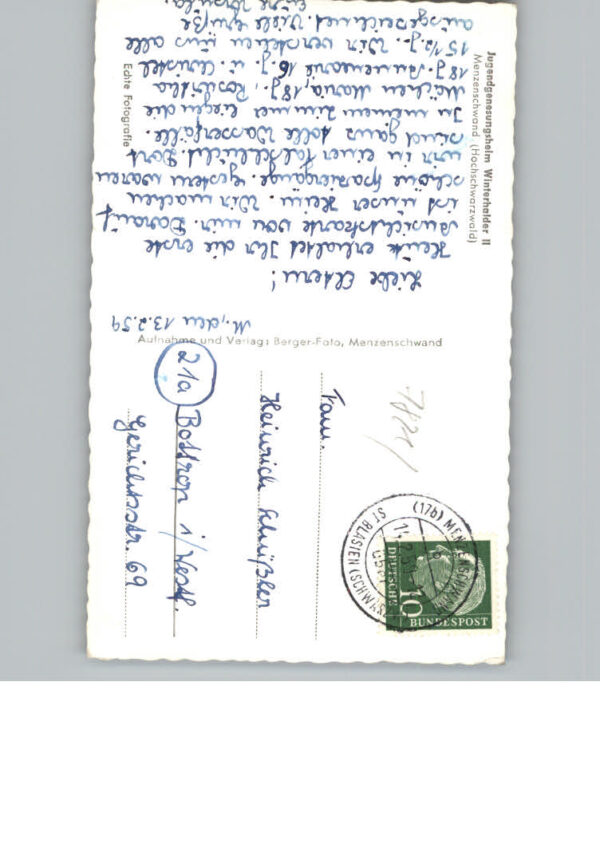 Jugendgenesungsheim Winterhalder II
Menzenschwand (Hochschwarzwald)
Echte Fotografie
Liebe Eltern!
Heute erhaltet Ihr die erste
Ansichtskarte von mir. Darauf
ist unser Heim. Wir machen
schöne Spaziergänge. Gestern waren
wir in einer Talschlucht. Dort
sind ganz tolle Wasserfälle.
In meinem Zimmer liegen die
Mädchen Maria 18J.,
18J. Annemarie 16 J. u. Christel
15 1/2 J. Wir verstehen uns alle
ausgezeichnet. Viele Grüße
Eure
M., den 13.2.59
Aufnahme und Verlag: Berger-Foto, Menzenschwand
Fam.
Heinrich Schüßler
21a Bottrop i/Westf.
Gerichtsstr. 69
7821
(17b) MENZENSCHWAND
ST BLASIEN (SCHWARZW
10
DEUTSCHE
BUNDESPOST